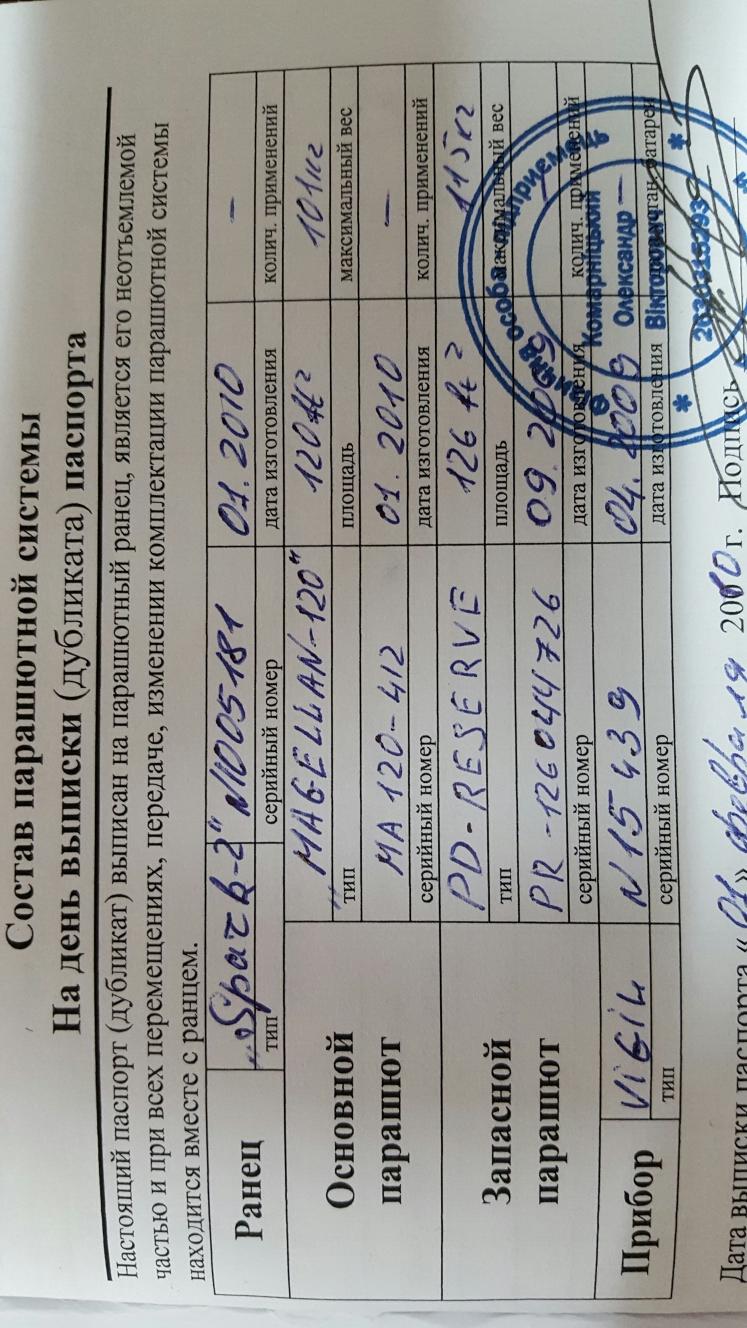 Состав парашютной системы
На день выписки (дубликата) паспорта
Настоящий паспорт (дубликат) выписан на парашютный ранец, является его неотъемлемой
частью и при всех перемещениях, передаче, изменении комплектации парашютной системы
находится вместе с ранцем.
Ранец
"Spark-2" N1005181 01.2010 –
тип серийный номер дата изготовления колич. применений
Основной парашют
"MAGELLAN-120" 120 ft² 101кг
тип площадь максимальный вес
MA 120-412 01.2010 –
серийный номер дата изготовления колич. применений
Запасной парашют
PD-RESERVE 126 ft² 115кг
тип площадь максимальный вес
PR-126044726 09.2009
серийный номер дата изготовления колич. применений
Прибор
VIGIL N15439 04.2009 –
тип серийный номер дата изготовления батареи
Дата выписки паспорта «01» февраля 2010 г. Подпись
Фізична особа підприємець
Комарницький
Олександр
Вікторович